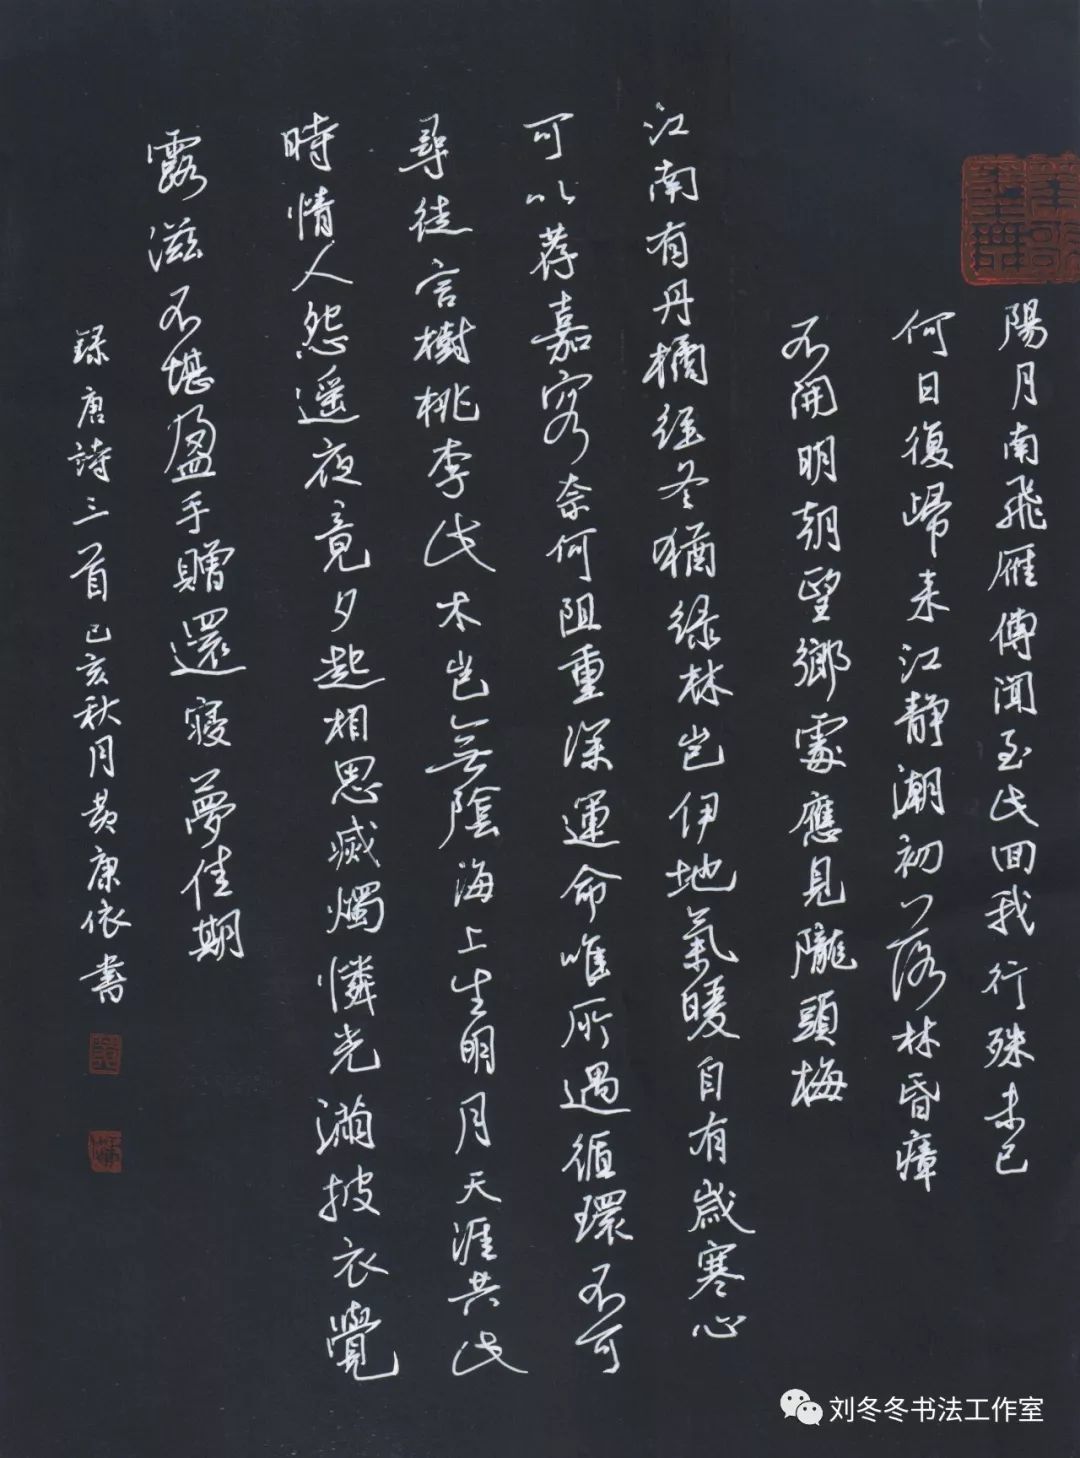 陽月南飛雁傳聞至此回我行殊未已
何日復歸来江静潮初落林昏瘴
不開明朝望鄉處應見隴頭梅
江南有丹橘經冬猶緑林豈伊地氣暖自有歲寒心
可以荐嘉客奈何阻重深運命唯所遇循環不可
尋徒言樹桃李此木豈無陰海上生明月天涯共此
時情人怨遥夜竟夕起相思滅燭憐光滿披衣覺
露滋不堪盈手贈還寢夢佳期
録唐詩三首己亥秋月黄康依書
刘冬冬书法工作室